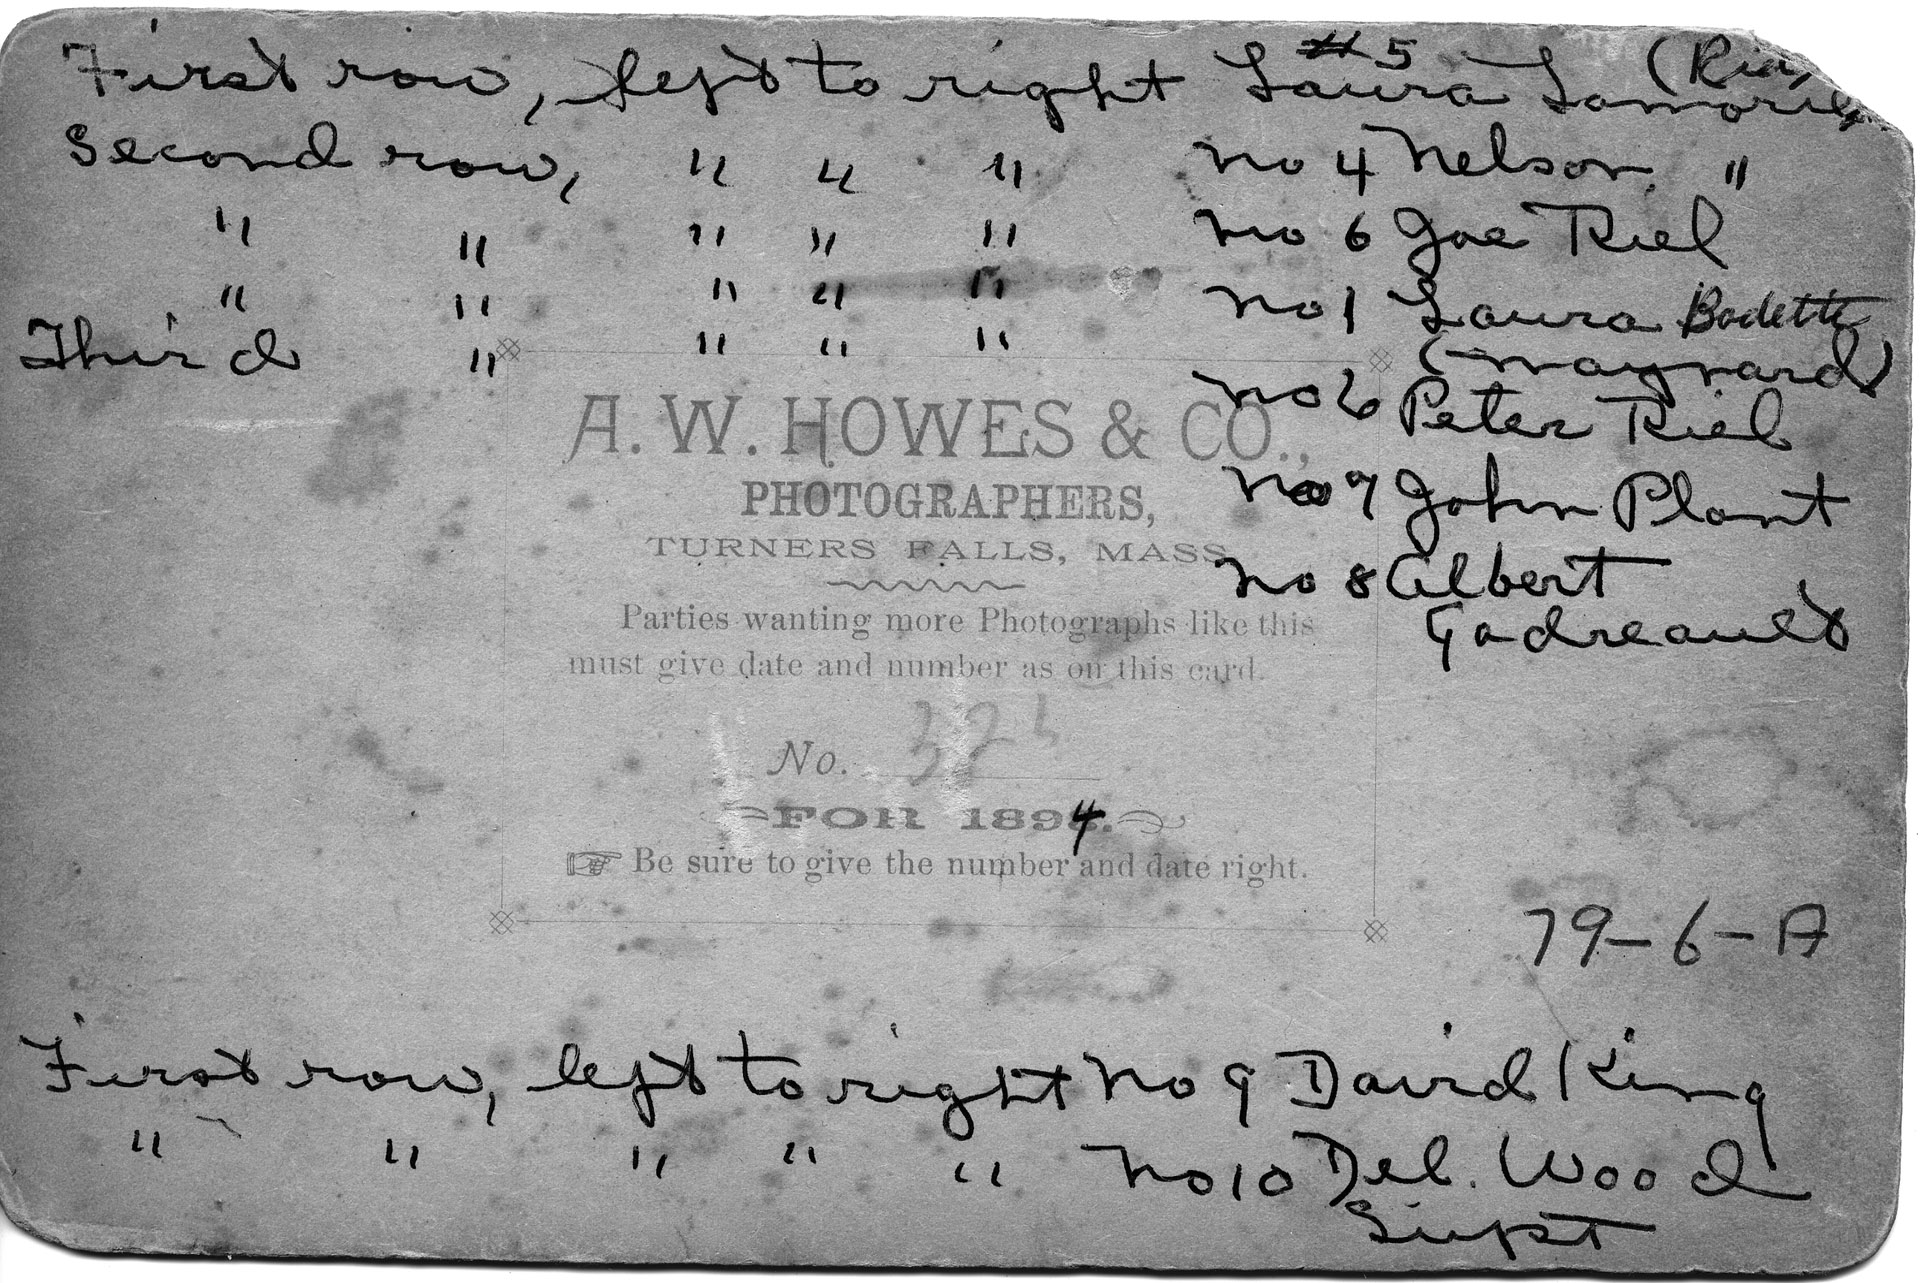 First row, left to right #5 Laura Lamorie (Riel
Second row, " " " no 4 Nelson "
" " " " " no 6 Joe Riel
" " " " " no 1 Laura Bodette
(Maynard)
Third " " " " no 6 Peter Riel
no 7 John Plant
no 8 Albert
Gadreault
A. W. HOWES & CO.,
PHOTOGRAPHERS,
TURNERS FALLS, MASS
Parties wanting more Photographs like this
must give date and number as on this card.
No. 32
FOR 1894.
Be sure to give the number and date right.
79-6-A
First row, left to right no 9 David King
" " " " " no 10 Deb. Wood
Supt